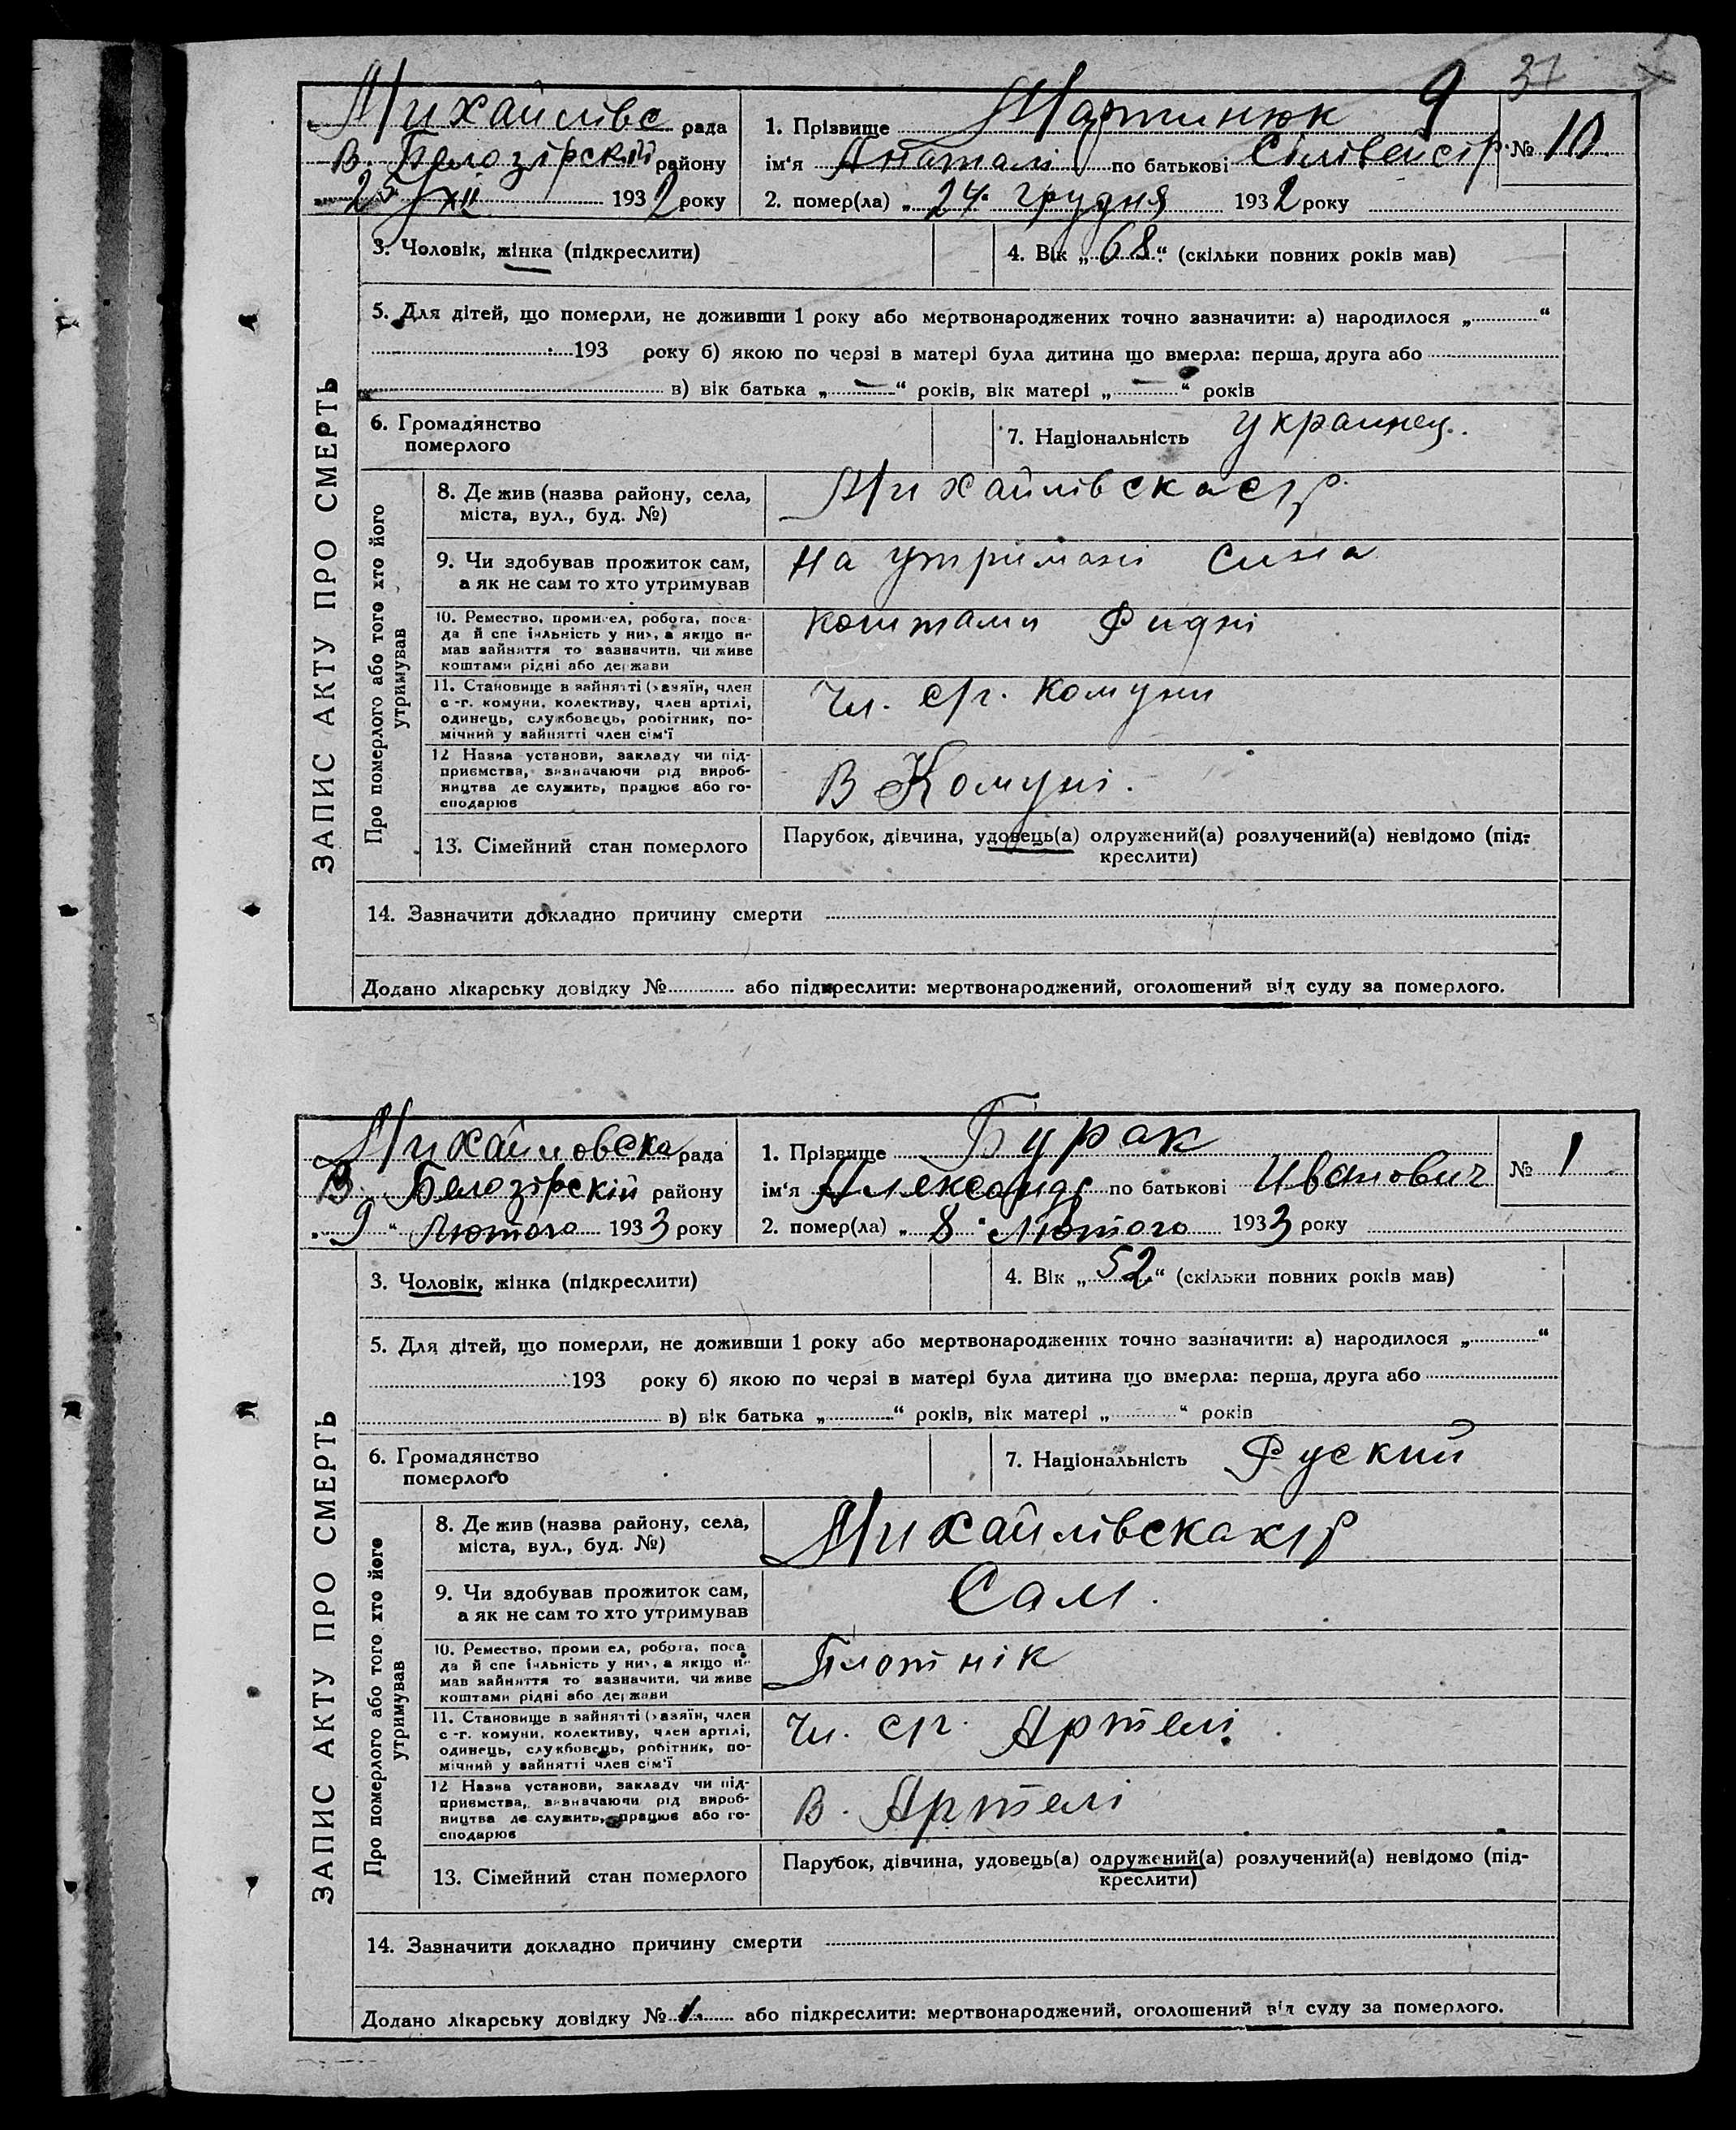 37
Михайлівс рада
В. Белозірский району
25/XII 1932 року
1. Прізвище Мартинюк 9
ім'я Анаталі по батькові Сілівейстр № 10
2. помер(ла) „24" грудня 1932 року
ЗАПИС АКТУ ПРО СМЕРТЬ
3. Чоловік, жінка (підкреслити)
4. Вік „68" (скільки повних років мав)
5. Для дітей, що померли, не доживши 1 року або мертвонароджених точно зазначити: а) народилося „ "
193 року б) якою по черзі в матері була дитина що вмерла: перша, друга або
в) вік батька „—" років, вік матері „—" років
6. Громадянство
померлого
7. Національність Украинец.
Про померлого або того хто його
утримував
8. Де жив (назва району, села,
міста, вул., буд. №)
Михайлівска с/р
9. Чи здобував прожиток сам,
а як не сам то хто утримував
На утримані Сина
10. Ремество, промисел, робота, поса-
да й спеціяльність у них, а якщо не
мав зайняття то зазначити, чи живе
коштами рідні або держави
Коштами Ридні
11. Становище в зайнятті (хазяїн, член
с.-г. комуни, колективу, член артілі,
одинець, службовець, робітник, по-
мічний у зайнятті член сім'ї
Чл. с/г. Комуни
12 Назва установи, закладу чи під-
приємства, визначаючи рід вироб-
ництва де служить, працює або го-
сподарює
В Комуні.
13. Сімейний стан померлого
Парубок, дівчина, удовець(а) одружений(а) розлучений(а) невідомо (під-
креслити)
14. Зазначити докладно причину смерти
Додано лікарську довідку № або підкреслити: мертвонароджений, оголошений від суду за померлого.
Михайловска рада
В. Белозірскій району
„9" Лютого 1933 року
1. Прізвище Бурак
ім'я Александр по батькові Иванович № 1
2. помер(ла) „8" Лютого 1933 року
ЗАПИС АКТУ ПРО СМЕРТЬ
3. Чоловік, жінка (підкреслити)
4. Вік „52" (скільки повних років мав)
5. Для дітей, що померли, не доживши 1 року або мертвонароджених точно зазначити: а) народилося „ "
193 року б) якою по черзі в матері була дитина що вмерла: перша, друга або
в) вік батька „ " років, вік матері „ " років
6. Громадянство
померлого
7. Національність Руский
Про померлого або того хто його
утримував
8. Де жив (назва району, села,
міста, вул., буд. №)
Михайлівска
9. Чи здобував прожиток сам,
а як не сам то хто утримував
Сам.
10. Ремество, промисел, робота, поса-
да й спеціяльність у них, а якщо не
мав зайняття то зазначити, чи живе
коштами рідні або держави
Плотнік
11. Становище в зайнятті (хазяїн, член
с.-г. комуни, колективу, член артілі,
одинець, службовець, робітник, по-
мічний у зайнятті член сім'ї
Чл. с/г. Артелі.
12 Назва установи, закладу чи під-
приємства, визначаючи рід вироб-
ництва де служить, працює або го-
сподарює
В. Артелі
13. Сімейний стан померлого
Парубок, дівчина, удовець(а) одружений(а) розлучений(а) невідомо (під-
креслити)
14. Зазначити докладно причину смерти
Додано лікарську довідку № 1. або підкреслити: мертвонароджений, оголошений від суду за померлого.